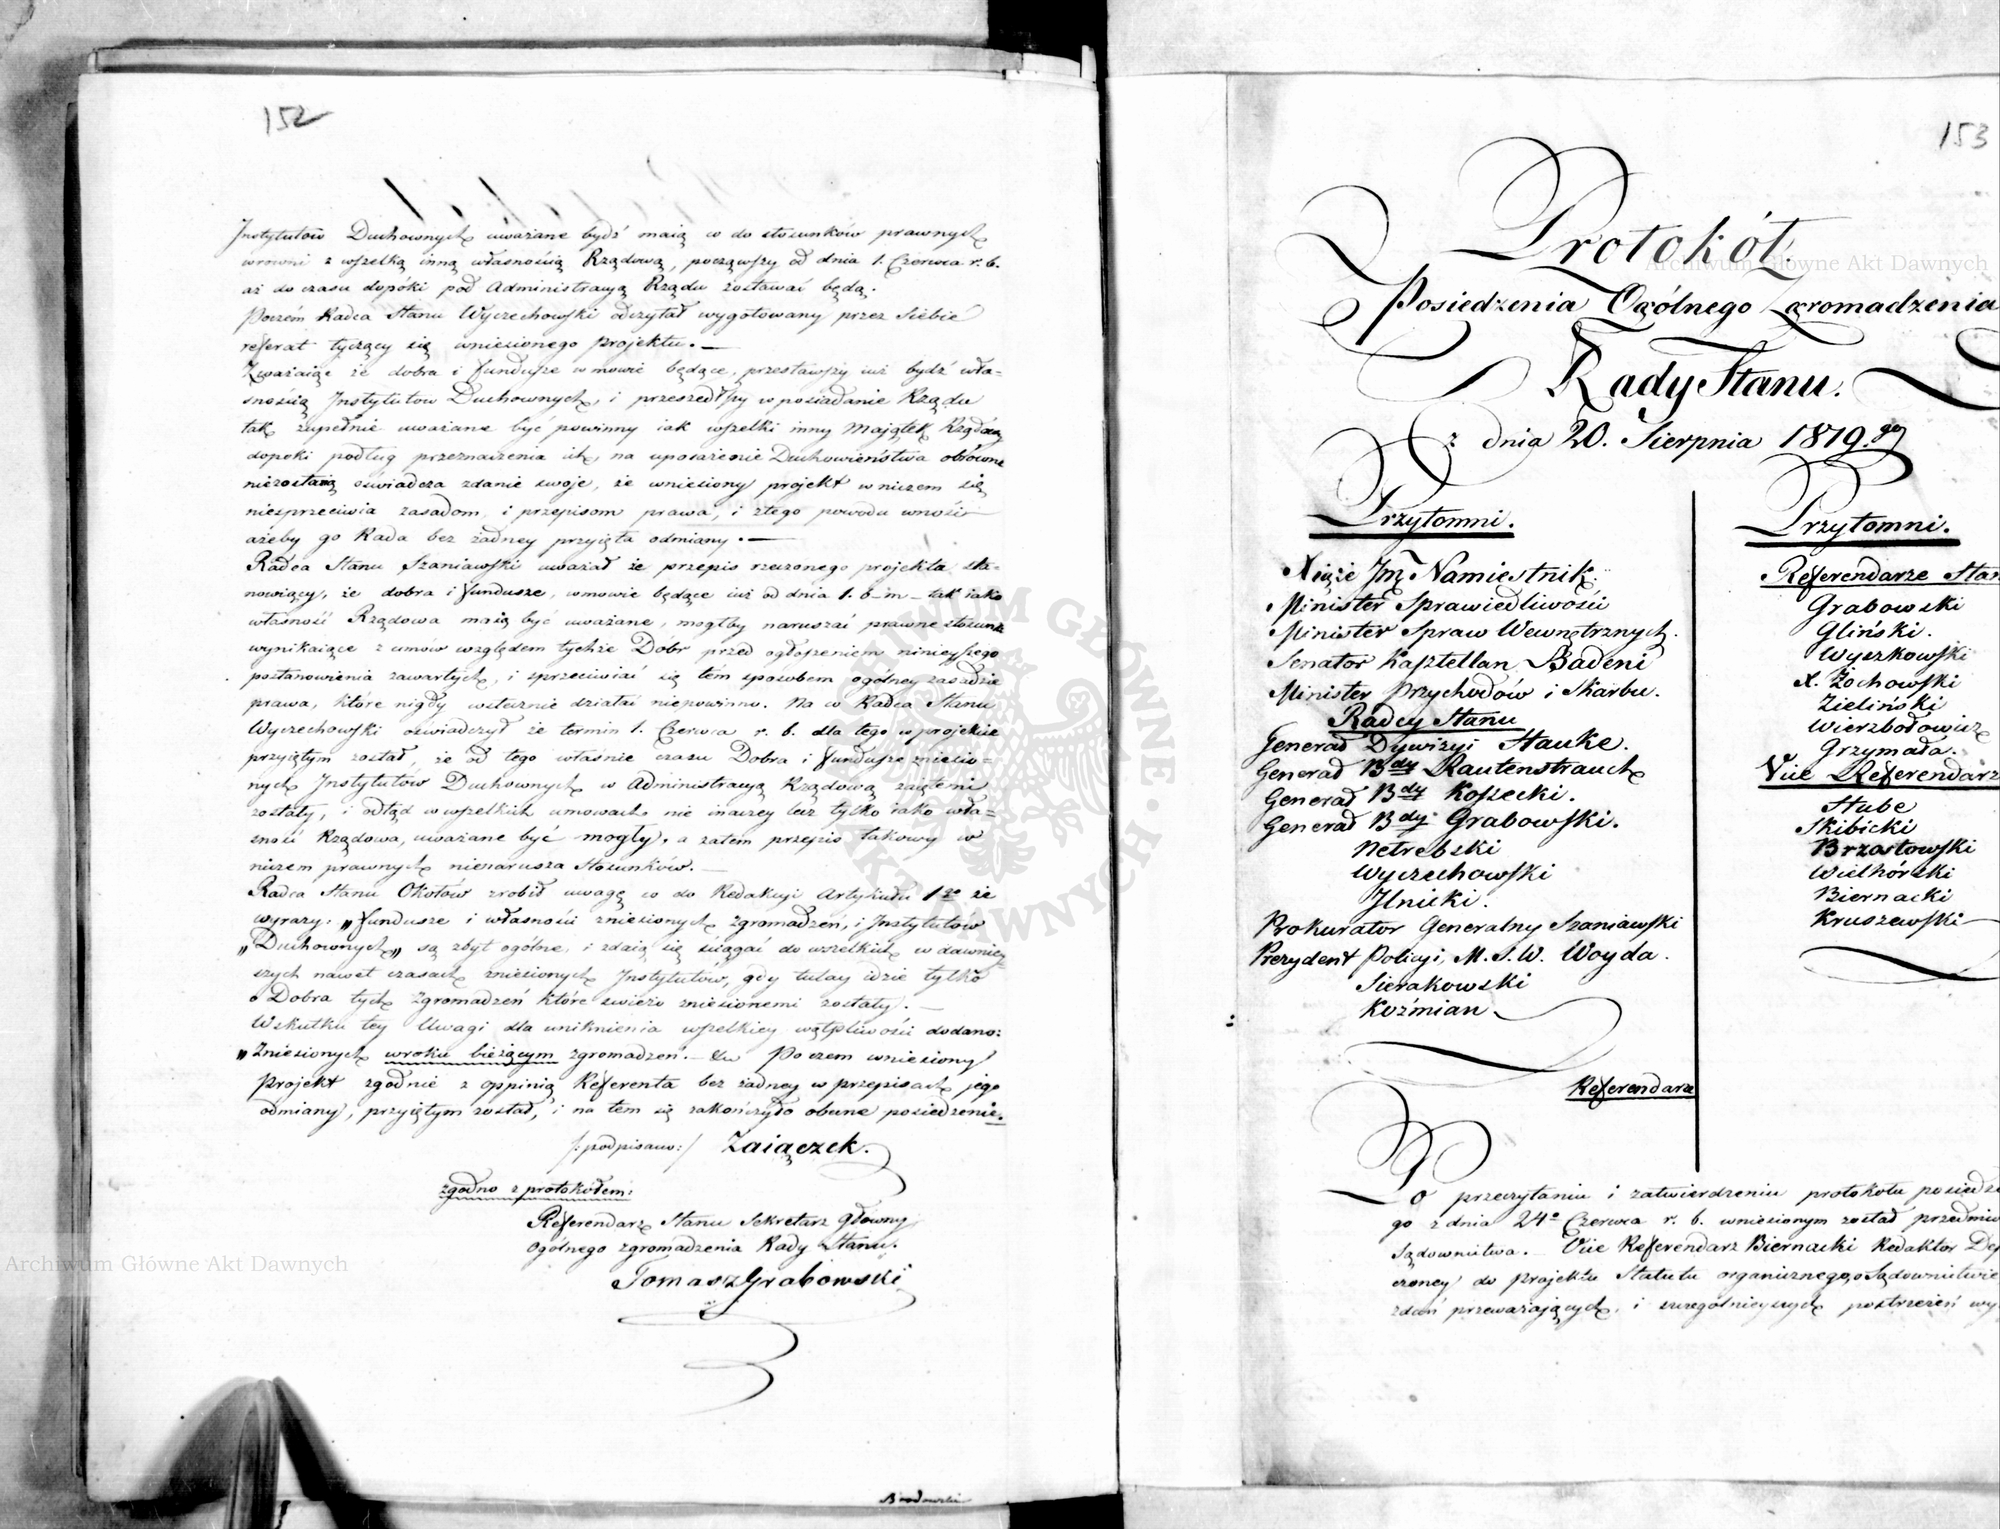 152
Instytutów Duchownych uważane bydź maią co do stosunków prawnych
wrowni z wszelką inną własnością Rządową, począwszy od dnia 1. Czerwca r. b.
aż do czasu dopóki pod Administracyą Rządu zostawać będą.
Poczém Radca Stanu Wyczechowski odczytał wygotowany przez Siebie
referat tyczący się wniesionego projektu. —
Zważaiąc że dobra i fundusze w mowie będące, przestawszy iuż bydź wła-
snością Instytutow Duchownych, i przeszedłszy w posiadanie Rządu
tak zupełnie uważane być powinny iak wszelki inny Maiątek Rządowy
dopoki podług przeznaczenia ich, na uposażenie Duchowieństwa obrócone
niezostaną oświadcza zdanie swoje, że wniesiony projekt w niczem się
niesprzeciwia zasadom, i przepisom prawa, i ztego powodu wnosi
ażeby go Rada bez żadney przyięła odmiany. —
Radca Stanu Szaniawski uważał że przepis rzeczonego projektu sta-
nowiący, że dobra i fundusze, w mowie będące iuż od dnia 1. b–m– tak iako
własność Rządowa maią być uważane, mogłby naruszać prawne stosunki
wynikaiące z umów względem tychże Dóbr przed ogłoszeniem ninieyszego
postanowienia zawartych, i sprzeciwiać się tém sposobem ogólney zasadzie
prawa, które nigdy wstecznie działać niepowinno. Na co Radca Stanu
Wyczechowski oświadczył że termin 1. Czerwca r. b. dla tego w projekcie
przyiętym został, że od tego właśnie czasu Dobra i fundusze zniesio-
nych Instytutów Duchownych w Administracyą Rządową zaiętemi
zostały, i odtąd w wszelkich umowach nie inaczey lecz tylko iako wła-
sność Rządowa, uważane być mogły, a zatem przepis takowy w
niczem prawnych nienarusza Stosunków. —
Radca Stanu Okołów zrobił uwagę co do Redakcyi Artykułu 1go że
wyrazy: „fundusze i własności zniesionych zgromadzeń, i Instytutów
„Duchownych„ są zbyt ogólne, i zdaią się ściągać do wszelkich w dawniey-
szych nawet czasach zniesionych Instytutów, gdy tutay idzie tylko
o Dobra tych zgromadzeń które świeżo zniesionemi zostały. —
Wskutku tey Uwagi dla uniknienia wszelkiey wątpliwości dodano:
„Zniesionych wroku bieżącym zgromadzeń. — Poczem wniesiony
Projekt zgodnie z oppinią Referenta bez żadney w przepisach jego
odmiany, przyiętym został, i na tem się zakończyło obecne posiedzenie.
/:podpisano:/ Zaiączek.
zgodno z protokółem:
Referendarz Stanu Sekretarz Główny
Ogólnego zgromadzenia Rady Stanu.
Tomasz Grabowski
Brodowski
153
Protokół
Posiedzenia Ogólnego Zgromadzenia
Rady Stanu.
z dnia 20. Sierpnia 1819.go
Przytomni.
Xiąże Jmć Namiestnik.
Minister Sprawiedliwości
Minister Spraw Wewnętrznych.
Senator Kasztellan Badeni
Minister Przychodów i Skarbu.
Radcy Stanu
Generał Dywizyi Hauke.
Generał Bdy Rautenstrauch
Generał Bdy Kossecki.
Generał Bdy Grabowski.
Netrebski
Wyczechowski
Ilnicki.
Prokurator Generalny Szaniawski
Prezydent Policyi, M. S. W. Woyda.
Sierakowski
Koźmian
Referendarze
Przytomni.
Referendarze Stan
Grabowski
Gliński.
Wyszkowski
X. Żochowski
Zieliński
Wierzbołowicz
Grzymała.
Vice Referendarz
Hube
Skibicki
Brzostowski
Wielhórski
Biernacki
Kruszewski
Po przeczytaniu i zatwierdzeniu protokołu posiedze
go z dnia 24o Czerwca r. b. wniesionym został przedmio
Sądownictwa. — Vice Referendarz Biernacki Redaktor De
czoney do projektu Statutu organicznego, o Sądownictwie
zdań przeważających, i szczególnieyszych postrzeżeń wy
Archiwum Główne Akt Dawnych
Archiwum Główne Akt Dawnych
ARCHIWUM GŁÓWNE AKT DAWNYCH